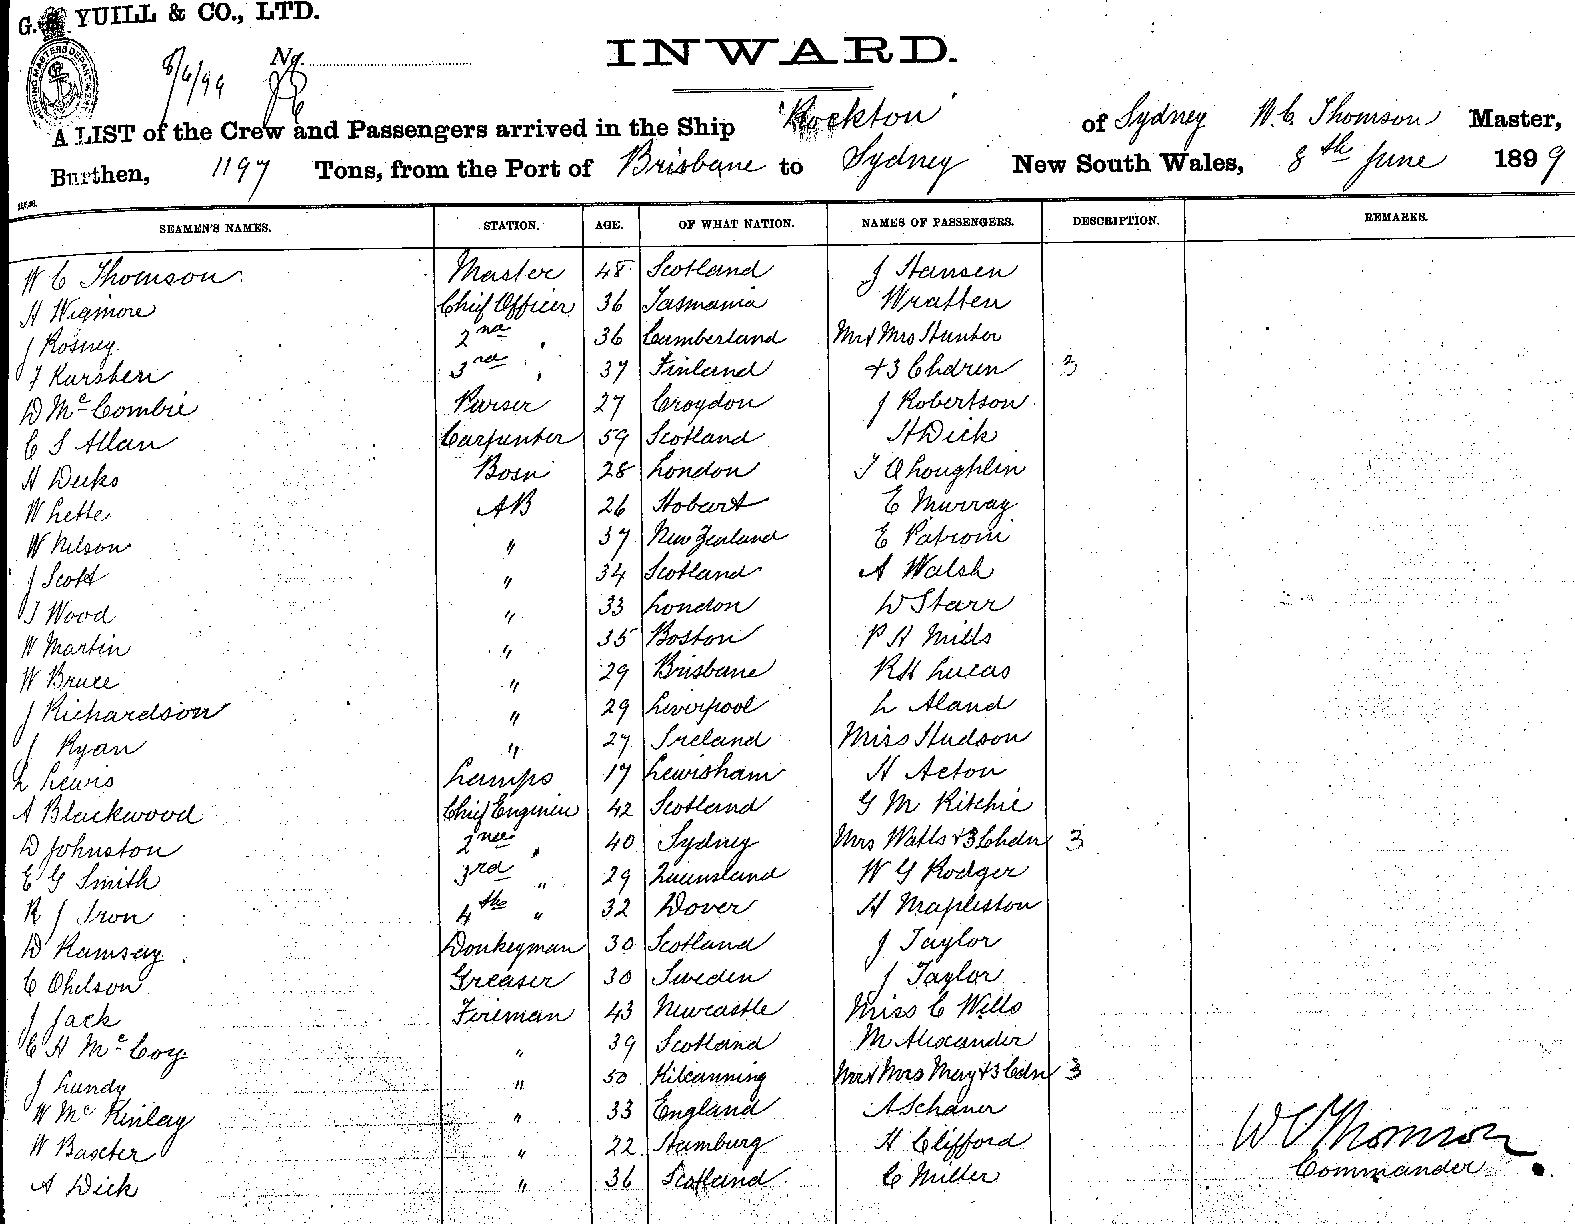 G. S. YUILL & CO., LTD.
8/6/99 No.
INWARD.
A LIST of the Crew and Passengers arrived in the Ship 'Rockton' of Sydney W. C. Thomson Master,
Burthen, 1197 Tons, from the Port of Brisbane to Sydney New South Wales, 8th June 1899
SEAMEN'S NAMES. STATION. AGE. OF WHAT NATION. NAMES OF PASSENGERS. DESCRIPTION. REMARKS.
W C Thomson Master 48 Scotland J Hansen
H Wigmore Chief Officer 36 Tasmania Wratten
J Rosney 2nd " 36 Cumberland Mr & Mrs Hunter
J Karsberi 3rd " 37 Finland + 3 Chdren 3
D McCombie Purser 27 Croydon J Robertson
C S Allan Carpenter 59 Scotland H Dick
H Deeks Bosn 28 London T O Loughlin
W Lette AB 26 Hobart E Murray
W Nelson " 37 New Zealand E Patroni
J Scott " 34 Scotland A Walsh
J Wood " 33 London W Starr
W Martin " 35 Boston P H Mills
W Bruce " 29 Brisbane R H Lucas
J Richardson " 29 Liverpool L Aland
J Ryan " 27 Ireland Miss Hudson
L Lewis Lamps 17 Lewisham H Acton
A Blackwood Chief Engineer 42 Scotland G M Ritchie
D Johnston 2nd " 40 Sydney Mrs Watts + 3 Chdn 3
E G Smith 3rd " 29 Queensland W G Rodger
R J Iron 4th " 32 Dover H Mapleston
D Ramsay Donkeyman 30 Scotland J Taylor
C Ohlson Greaser 30 Sweden J Taylor
J Jack Fireman 43 Newcastle Miss C Wells
C H McCoy " 39 Scotland M Alexander
J Lundy " 50 Kilcanning Mr & Mrs May + 3 Cdn 3
W McKinlay " 33 England A Schauer
W Baxter " 22 Hamburg H Clifford
A Dick " 36 Scotland C Miller
W C Thomson
Commander